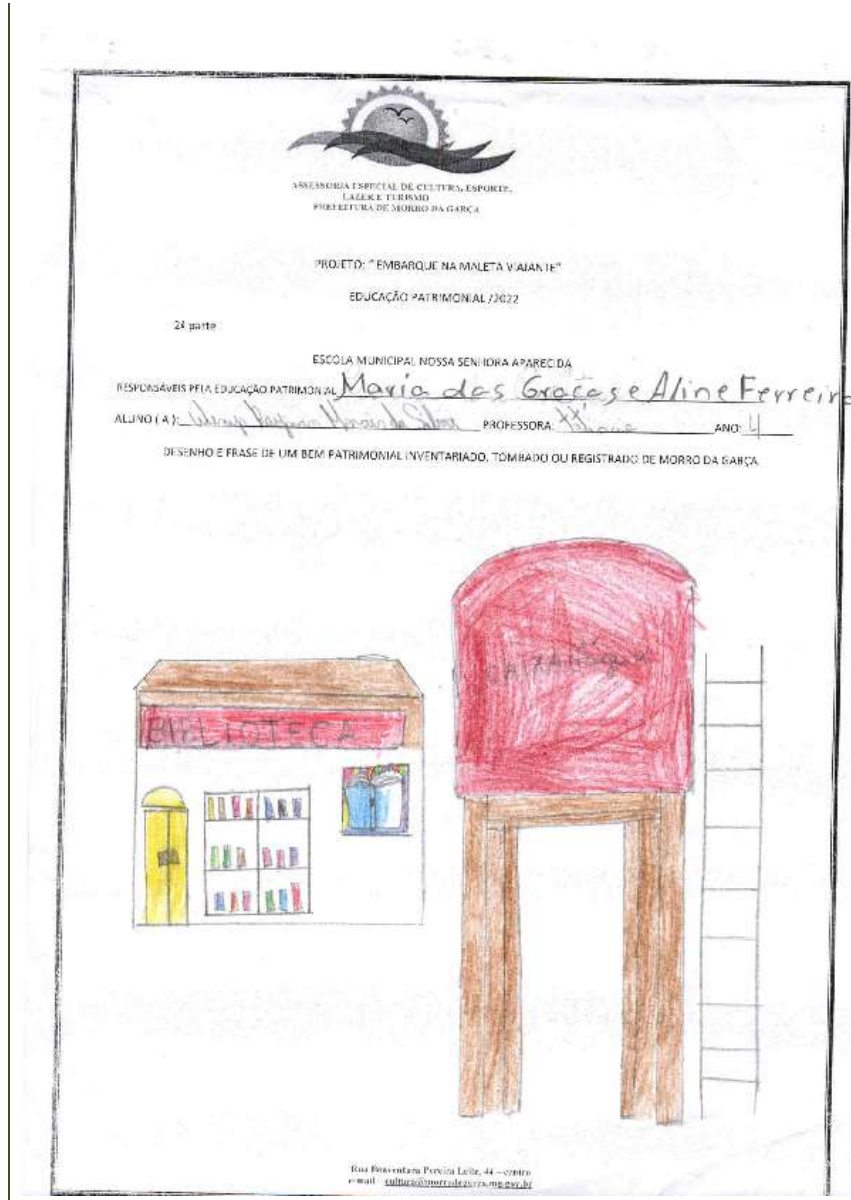 ASSESSORIA ESPECIAL DE CULTURA, ESPORTE,
LAZER E TURISMO
PREFEITURA DE MORRO DA GARÇA
PROJETO: " EMBARQUE NA MALETA VIAJANTE"
EDUCAÇÃO PATRIMONIAL /2022
2ª parte
ESCOLA MUNICIPAL NOSSA SENHORA APARECIDA
RESPONSÁVEIS PELA EDUCAÇÃO PATRIMONIAL Maria das Graças e Aline Ferreira
ALUNO ( A ): PROFESSORA: ANO: 4
DESENHO E FRASE DE UM BEM PATRIMONIAL INVENTARIADO, TOMBADO OU REGISTRADO DE MORRO DA GARÇA
BIBLIOTECA
CAIXA
Rua Boaventura Pereira Leite, 44 – centro
e-mail –